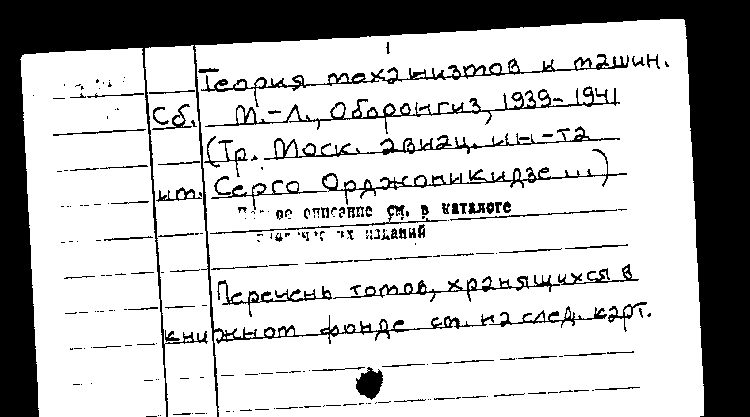 1
Теория механизмов и машин.
Сб. М.-Л., Оборонгиз, 1939-1941
(Тр. Моск. авиац. ин-та
им. Серго Орджоникидзе...)
описание см. в каталоге
изданий
Перечень томов, хранящихся в
книжном фонде см. на след. карт.